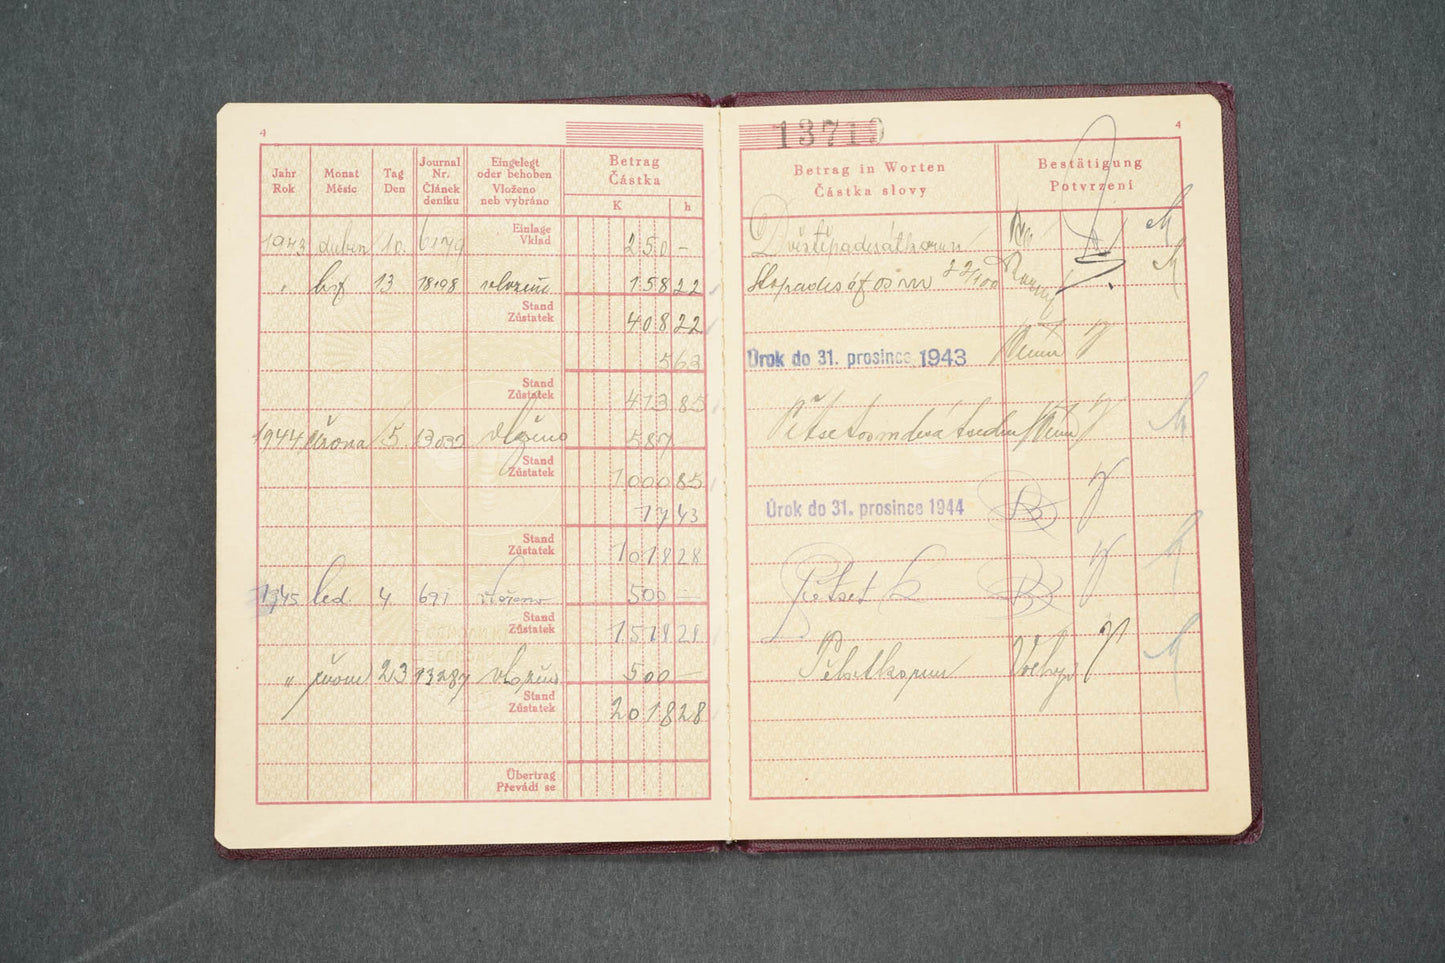 4
Jahr Rok
Monat Měsíc
Tag Den
Journal Nr. Článek deníku
Eingelegt oder behoben Vloženo neb vybráno
Betrag Částka
K h
Einlage Vklad
1943 duben 10. 6179 250 –
" 13 18198 vloženo 158 22
Stand Zůstatek 408 22
5 63
Stand Zůstatek 413 85
1944 února 15. 13032 vloženo 587
Stand Zůstatek 1000 85
17 43
Stand Zůstatek 1018 28
1945 led. 4. 691 vloženo 500 –
Stand Zůstatek 1518 28
" 23 13287 vloženo 500 –
Stand Zůstatek 2018 28
Übertrag Převádí se
13719
4
Betrag in Worten Částka slovy
Bestätigung Potvrzení
Dvěstěpadesátkorun
Stopadesátosm 22/100
Úrok do 31. prosince 1943
Pětsetosmdesátsedm
Úrok do 31. prosince 1944
Pětset
Pětsetkorun